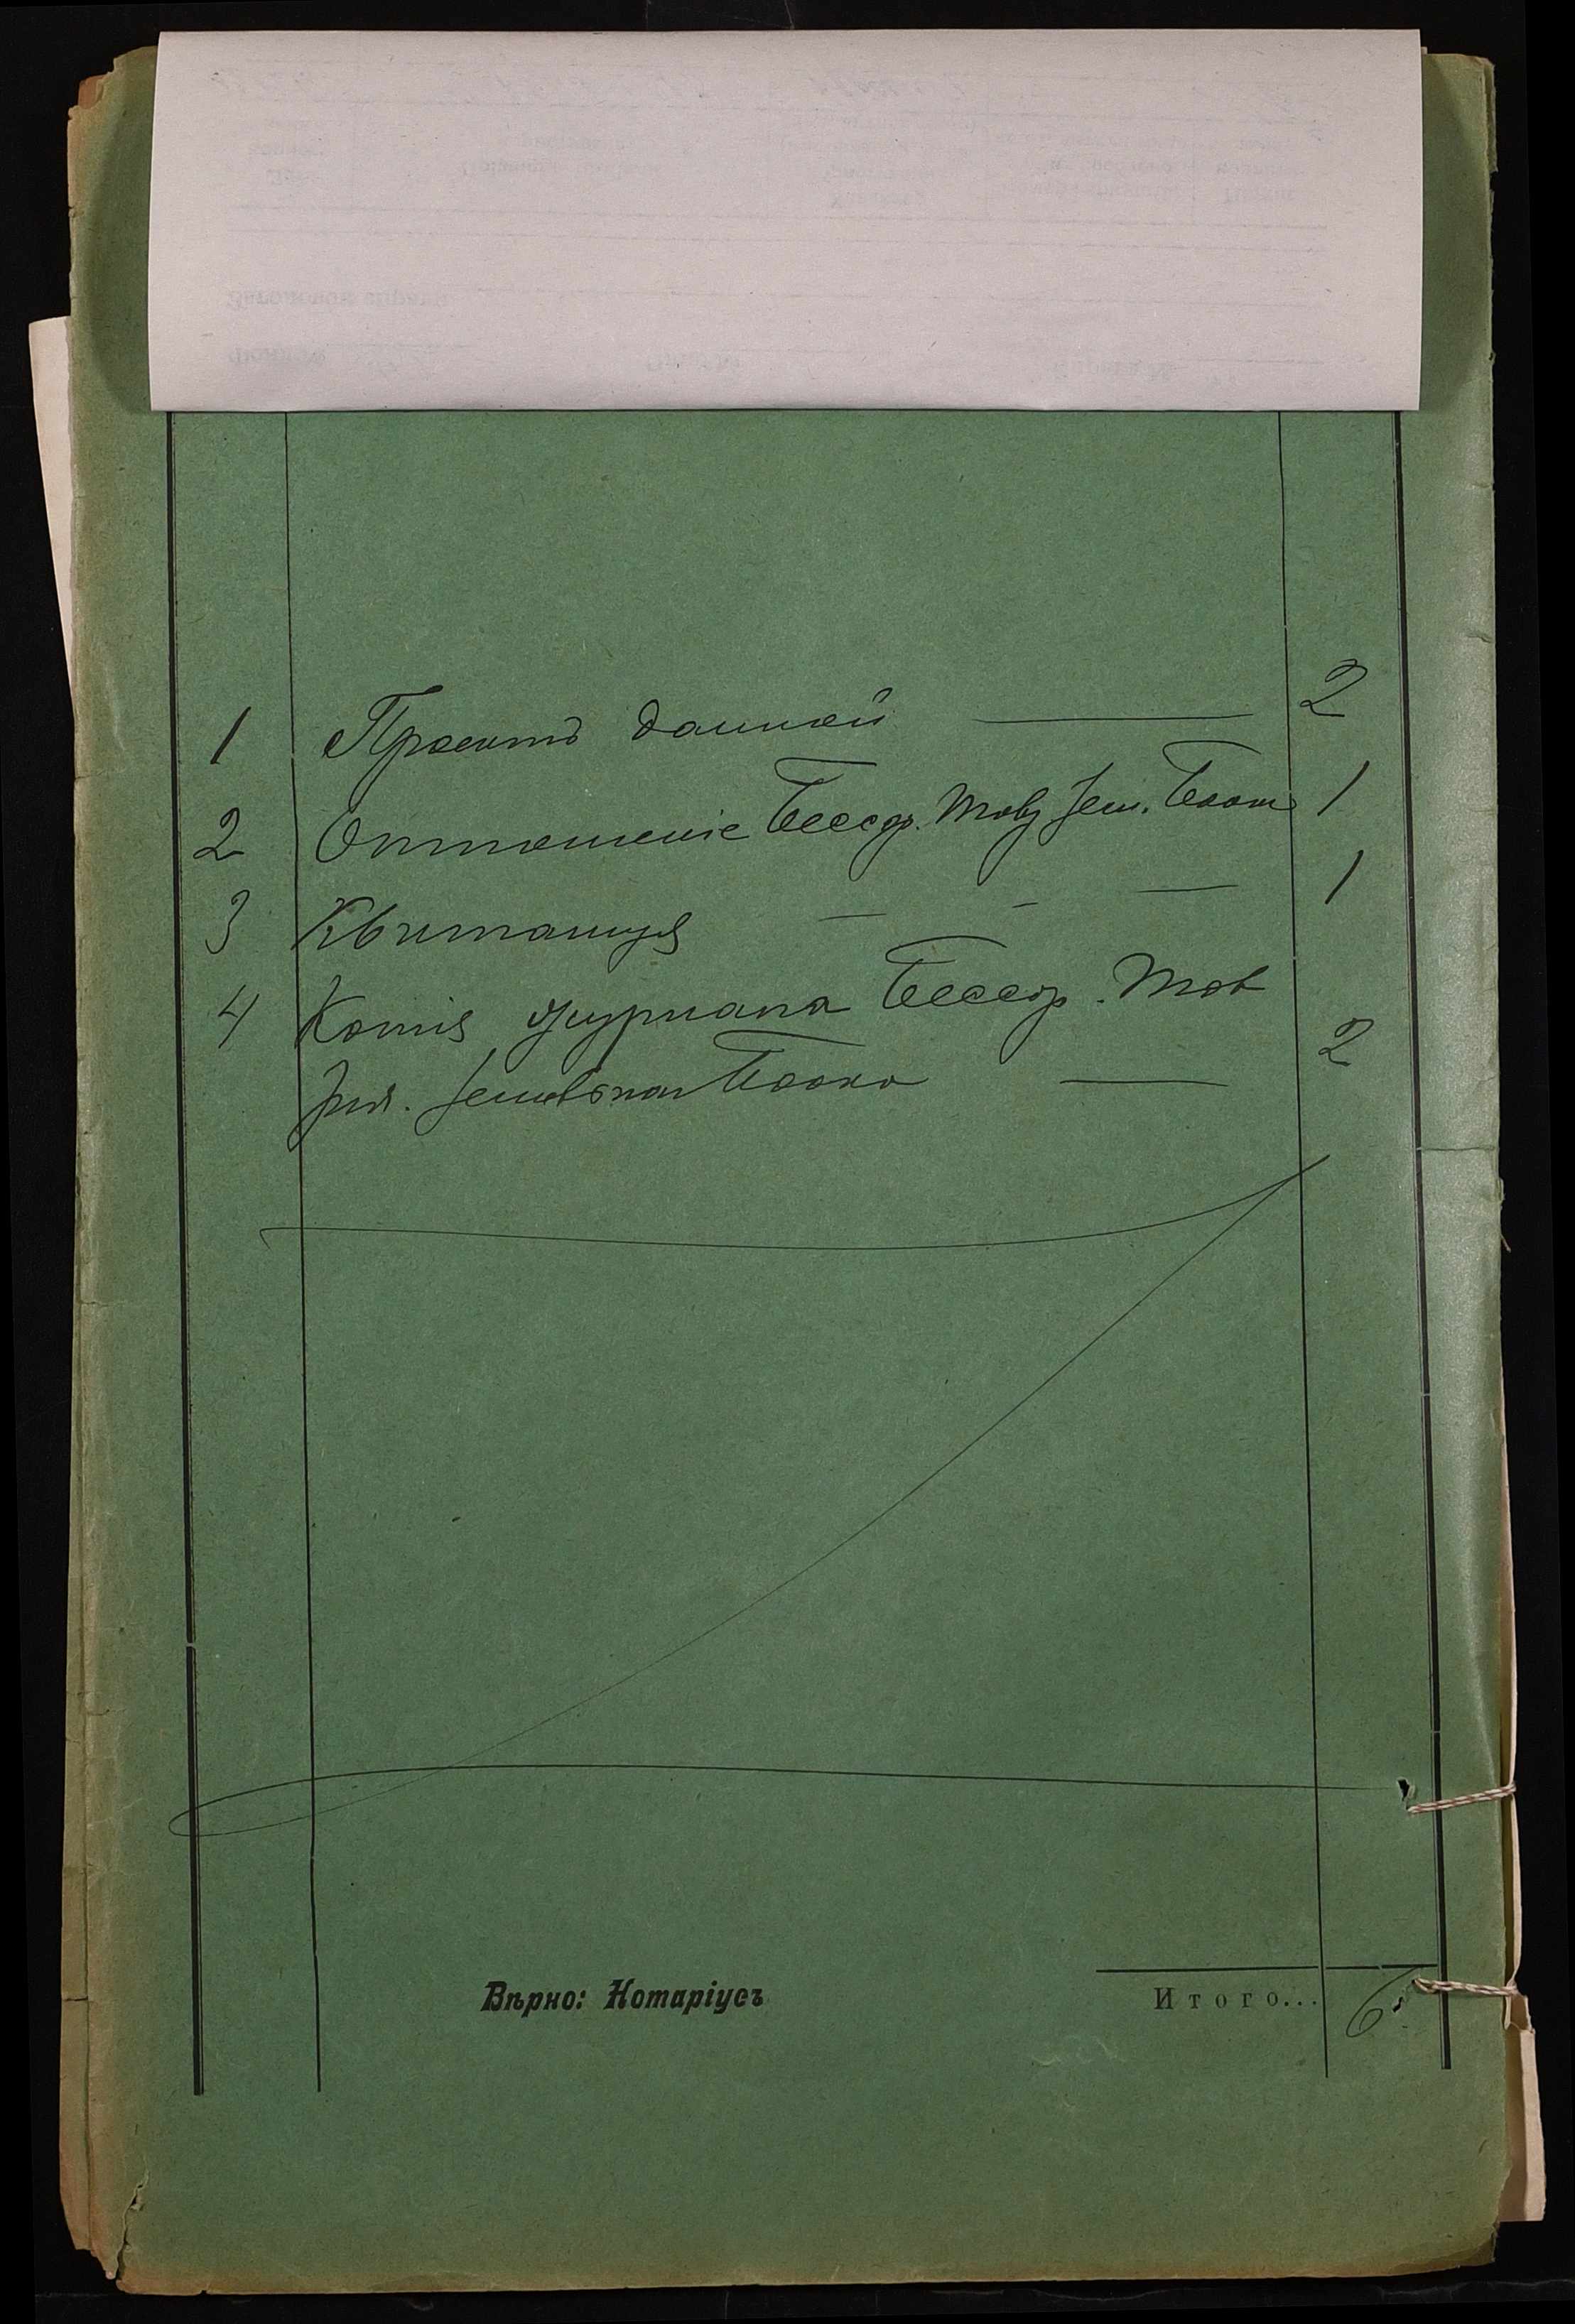 1 Проектъ данной — 2
2 Отношеніе Бессар. Тавр. Зем. Банка 1
3 Квитанція — - — 1
4 Копія журнала Бессар. Тав
Зем. Банка — 2
Вѣрно: Нотаріусъ
Итого... 6